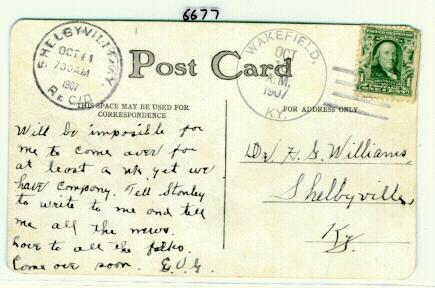 6677
SHELBYVILLE, KY.
OCT 11
730AM
1907
REC'D.
Post Card
WAKEFIELD,
OCT
A.M.
1907
KY.
THIS SPACE MAY BE USED FOR
CORRESPONDENCE
FOR ADDRESS ONLY
Will be imposible for
me to come over for
at least a wk yet we
have company. Tell Stanley
to write to me and tell
me all the news.
Love to all the folks.
Come ove soon. E.V.G.
Dr H. G. Williams,
Shelbyville,
Ky.